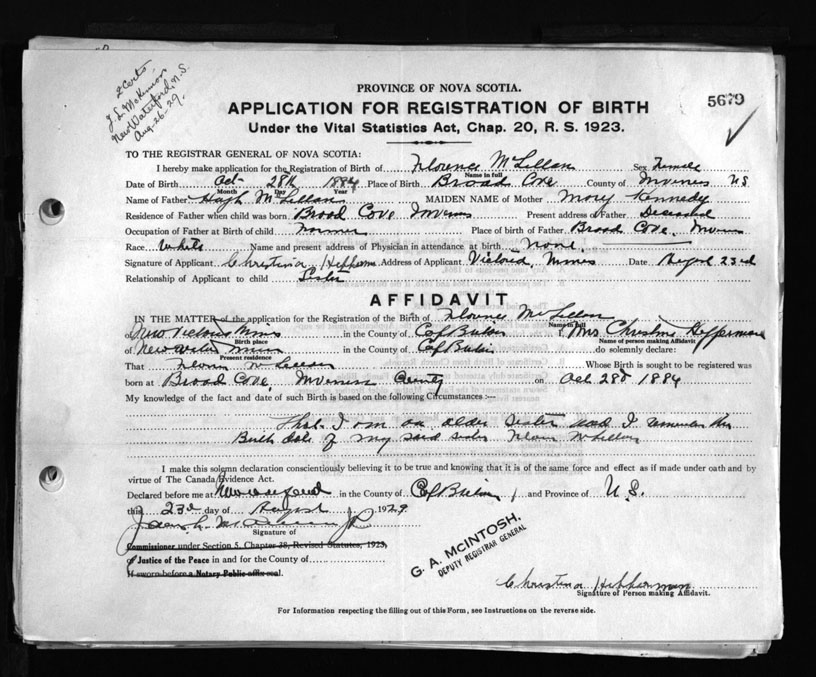 2 Certs.
J. L. McKinnon
New Waterford, N.S.
Aug. 26-29.
5679
PROVINCE OF NOVA SCOTIA.
APPLICATION FOR REGISTRATION OF BIRTH
Under the Vital Statistics Act, Chap. 20, R. S. 1923.
TO THE REGISTRAR GENERAL OF NOVA SCOTIA:
I hereby make application for the Registration of Birth of Florence McLellan Sex Female
Name in full
Date of Birth Oct 28th 1884 Place of Birth Broad Cove County of Inverness N.S
Month Day Year
Name of Father Hugh McLellan MAIDEN NAME of Mother Mary Kennedy
Residence of Father when child was born Broad Cove Inverness Present address of Father Deceased
Occupation of Father at Birth of child Place of birth of Father Broad Cove, Inverness
Race White Name and present address of Physician in attendance at birth None.
Signature of Applicant Christina Heffernan Address of Applicant Victoria Mines Date August 23rd
Relationship of Applicant to child Sister
AFFIDAVIT
IN THE MATTER of the application for the Registration of the Birth of Florence McLellan
Name in full
of New Victoria Mines in the County of Cape Breton I, Mrs Christina Heffernan
Birth place Name of person making Affidavit
of in the County of Cape Breton do solemnly declare:
Present residence
That Florence McLellan Whose Birth is sought to be registered was
born at Broad Cove, Inverness County on Oct 28th 1884
My knowledge of the fact and date of such Birth is based on the following Circumstances :—
That I am an older sister and I remember the
Birth date of my said sister McLellan
I make this solemn declaration conscientiously believing it to be true and knowing that it is of the same force and effect as if made under oath and by
virtue of The Canada Evidence Act.
Declared before me at New Waterford in the County of Cape Breton and Province of N.S.
this 23rd day of August 1929
Signature of
Commissioner under Section 5, Chapter 38, Revised Statutes, 1923,
of Justice of the Peace in and for the County of
If sworn before a Notary Public affix seal.
G. A. McINTOSH,
DEPUTY REGISTRAR GENERAL
Christina Heffernan
Signature of Person making Affidavit.
For Information respecting the filling out of this Form, see Instructions on the reverse side.